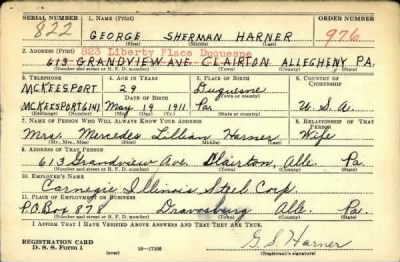 SERIAL NUMBER 1. NAME (Print) ORDER NUMBER
822 GEORGE SHERMAN HARNER 976
(First) (Middle) (Last)
2. ADDRESS (Print) 823 Liberty Place Duquesne
613 GRANDVIEW AVE CLAIRTON ALLEGHENY PA.
(Number and street or R. F. D. number) (Town) (County) (State)
3. TELEPHONE 4. AGE IN YEARS 5. PLACE OF BIRTH 6. COUNTRY OF CITIZENSHIP
McKEESPORT 29 Duquesne
DATE OF BIRTH (Town or county)
McKEESPORT May 19 1911 Pa. U. S. A.
(Exchange) (Number) (Mo.) (Day) (Yr.) (State or country)
7. NAME OF PERSON WHO WILL ALWAYS KNOW YOUR ADDRESS 8. RELATIONSHIP OF THAT PERSON
Mrs. Mercedes Lillian Harner Wife
(Mr., Mrs., Miss) (First) (Middle) (Last)
9. ADDRESS OF THAT PERSON
613 Grandview Ave. Clairton, Alle. Pa.
(Number and street or R. F. D. number) (Town) (County) (State)
10. EMPLOYER'S NAME
Carnegie Illinois Steel Corp.
11. PLACE OF EMPLOYMENT OR BUSINESS
P.O. Box 878 Dravosburg Alle. Pa.
(Number and street or R. F. D. number) (Town) (County) (State)
I AFFIRM THAT I HAVE VERIFIED ABOVE ANSWERS AND THAT THEY ARE TRUE.
REGISTRATION CARD
D. S. S. Form 1 (over) G. S. Harner
(Registrant's signature)